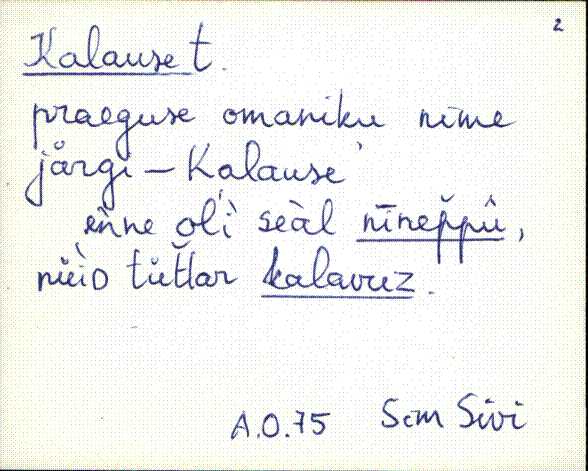 2
Kalause t.
praeguse omaniku nime
järgi – Kalause'
ènne ol'ì seàl nīnep̆p̆û,
nüìD tüt̆lar kalavuz.
A.O.75 Sim Sivi